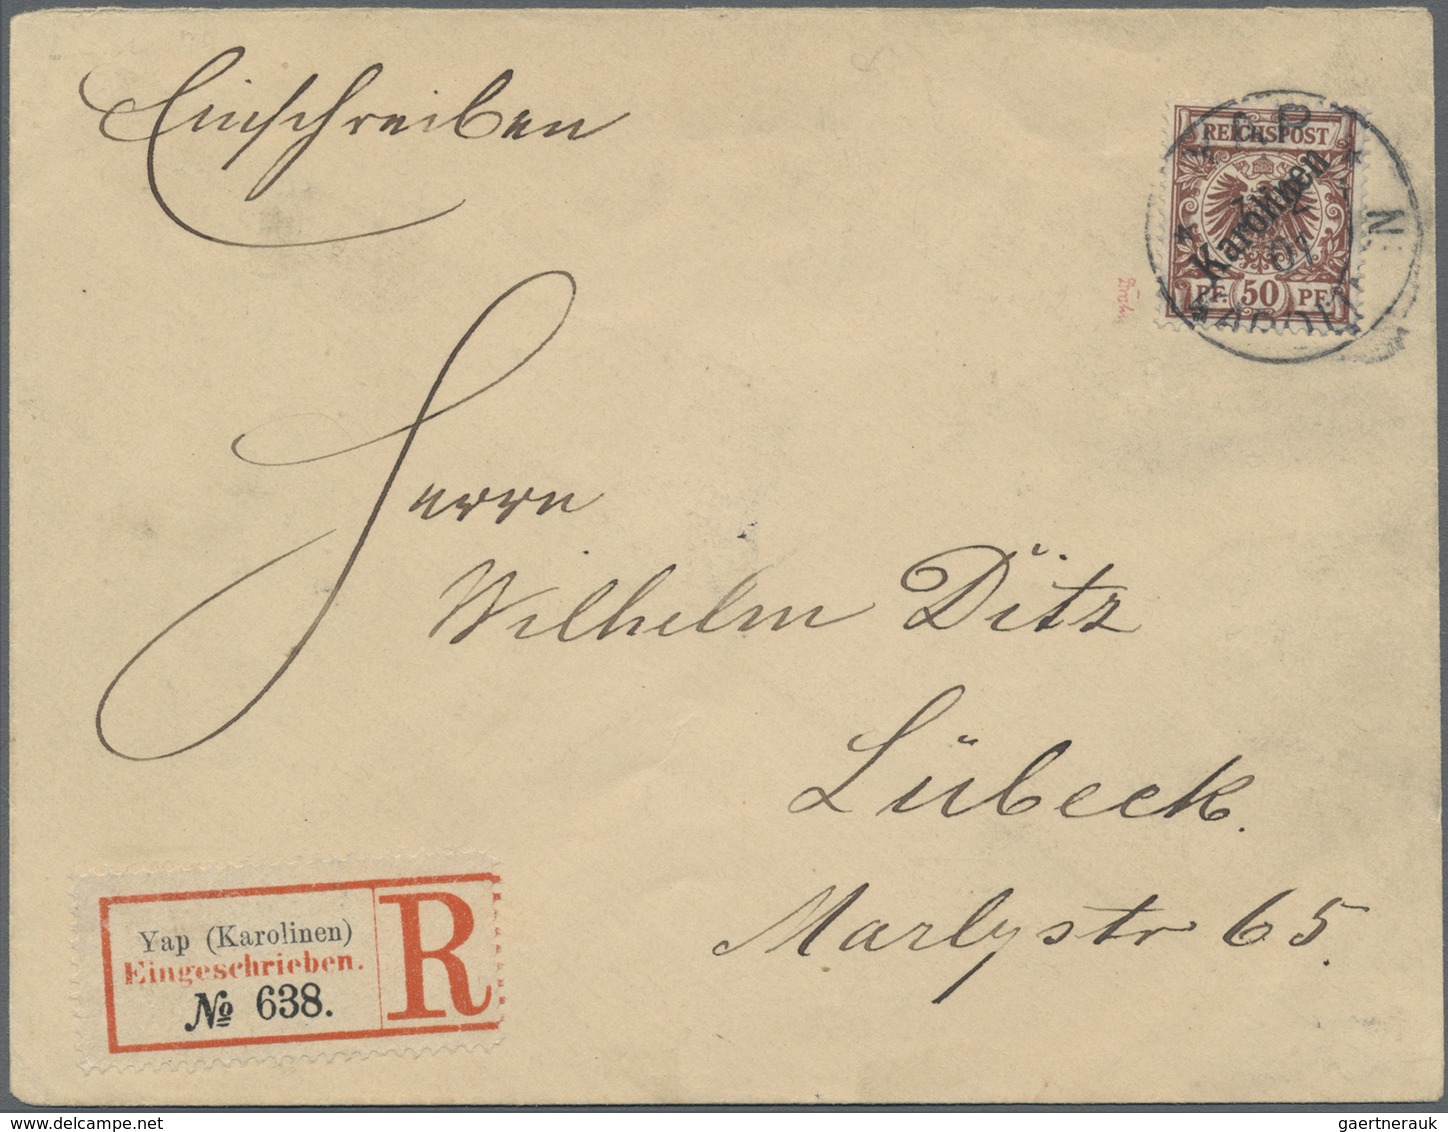 Einschreiben
YAP
REICHSPOST
Karolinen
01
PF. 50 PF.
Herrn
Wilhelm Ditz
Lübeck.
Marlystr 65.
Yap (Karolinen)
Eingeschrieben.
№ 638.
R
gaertnerauk